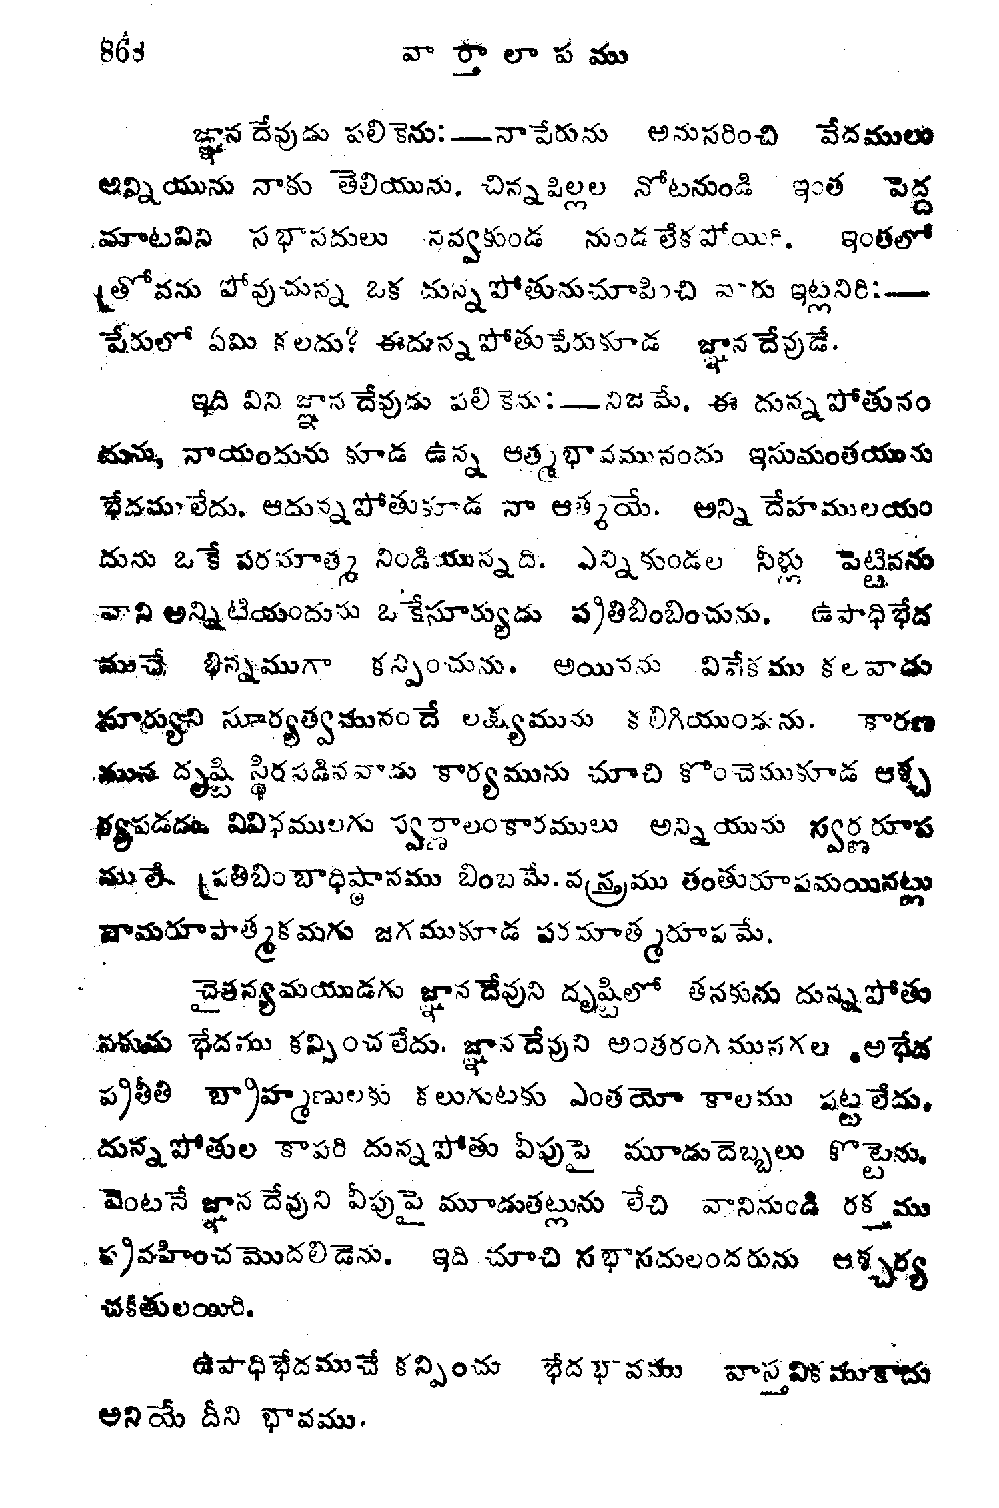 వార్తాలాపము
జ్ఞానదేవుడు పలికెను:—నాపేరును అనుసరించి వేదములు
అన్నియును నాకు తెలియును. చిన్నపిల్లల నోటనుండి ఇంత పెద్ద
మాటవిని సభాసదులు నవ్వకుండ నుండలేకపోయిరి. ఇంతలో
త్రోవను పోవుచున్న ఒక దున్నపోతునుచూపించి వారు ఇట్లనిరి:—
పేరులో ఏమి కలదు? ఈదున్నపోతుపేరుకూడ జ్ఞానదేవుడే.
ఇది విని జ్ఞానదేవుడు పలికెను:—నిజమే. ఈ దున్నపోతునం
దును, నాయందును కూడ ఉన్న ఆత్మభావమునందు ఇసుమంతయును
భేదములేదు. ఆదున్నపోతుకూడ నా ఆత్మయే. అన్ని దేహములయం
దును ఒకే పరమాత్మ నిండియున్నది. ఎన్నికుండల నీళ్లు పెట్టినను
వాని అన్నిటియందును ఒకేసూర్యుడు ప్రతిబింబించును. ఉపాధిభేద
ముచే భిన్నముగా కన్పించును. అయినను వివేకము కలవాడు
సూర్యుని సూర్యత్వమునందే లక్ష్యమును కలిగియుండును. కారణ
మున దృష్టి స్థిరపడినవాడు కార్యమును చూచి కొంచెముకూడ ఆశ్చ
ర్యపడడు. వివిధములగు స్వర్ణాలంకారములు అన్నియును స్వర్ణరూప
ములే. ప్రతిబింబాధిష్ఠానము బింబమే. వస్త్రము తంతురూపమయినట్లు
నామరూపాత్మకమగు జగముకూడ పరమాత్మరూపమే.
చైతన్యమయుడగు జ్ఞానదేవుని దృష్టిలో తనకును దున్నపోతు
నకును భేదము కన్పించలేదు. జ్ఞానదేవుని అంతరంగమునగల అభేద
ప్రతీతి బ్రాహ్మణులకు కలుగుటకు ఎంతయో కాలము పట్టలేదు.
దున్నపోతుల కాపరి దున్నపోతు వీపుపై మూడుదెబ్బలు కొట్టెను.
వెంటనే జ్ఞానదేవుని వీపుపై మూడుతట్లును లేచి వానినుండి రక్తము
ప్రవహించమొదలిడెను. ఇది చూచి సభాసదులందరును ఆశ్చర్య
చకితులయిరి.
ఉపాధిభేదముచే కన్పించు భేదభావము వాస్తవికముకాదు
అనియే దీని భావము.